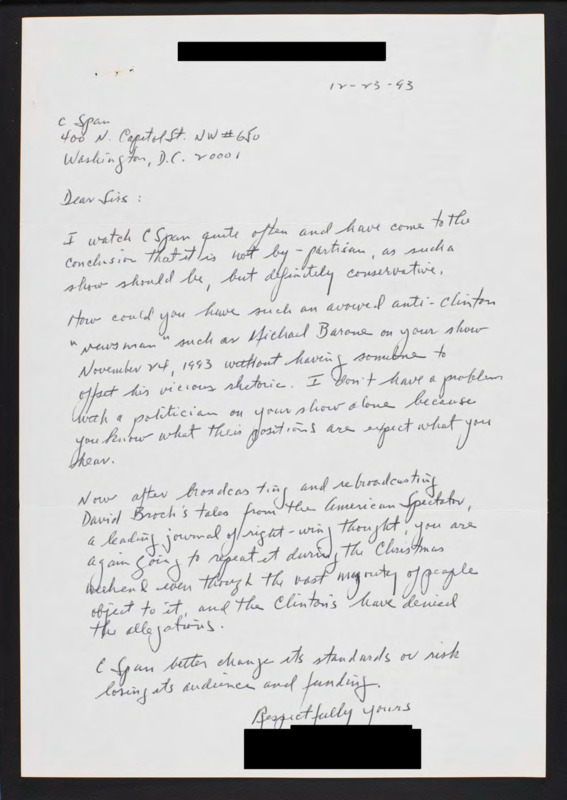 12-23-93
C Span
400 N. Capitol St. NW #650
Washington, D.C. 20001
Dear Sirs:
I watch C Span quite often and have come to the
conclusion that it is not by-partisan, as such a
show should be, but definitely conservative.
How could you have such an avowed anti-Clinton
"newsman" such as Michael Barone on your show
November 24, 1993 without having someone to
offset his vicious rhetoric. I don't have a problem
with a politician on your show alone because
you know what their positions are expect what you
hear.
Now after broadcasting and rebroadcasting
David Broch's tales from the American Spectator,
a leading journal of right-wing thought, you are
again going to repeat it during the Christmas
weekend even though the vast majority of people
object to it, and the Clintons have denied
the allegations.
C Span better change its standards or risk
losing its audience and funding.
Respectfully yours